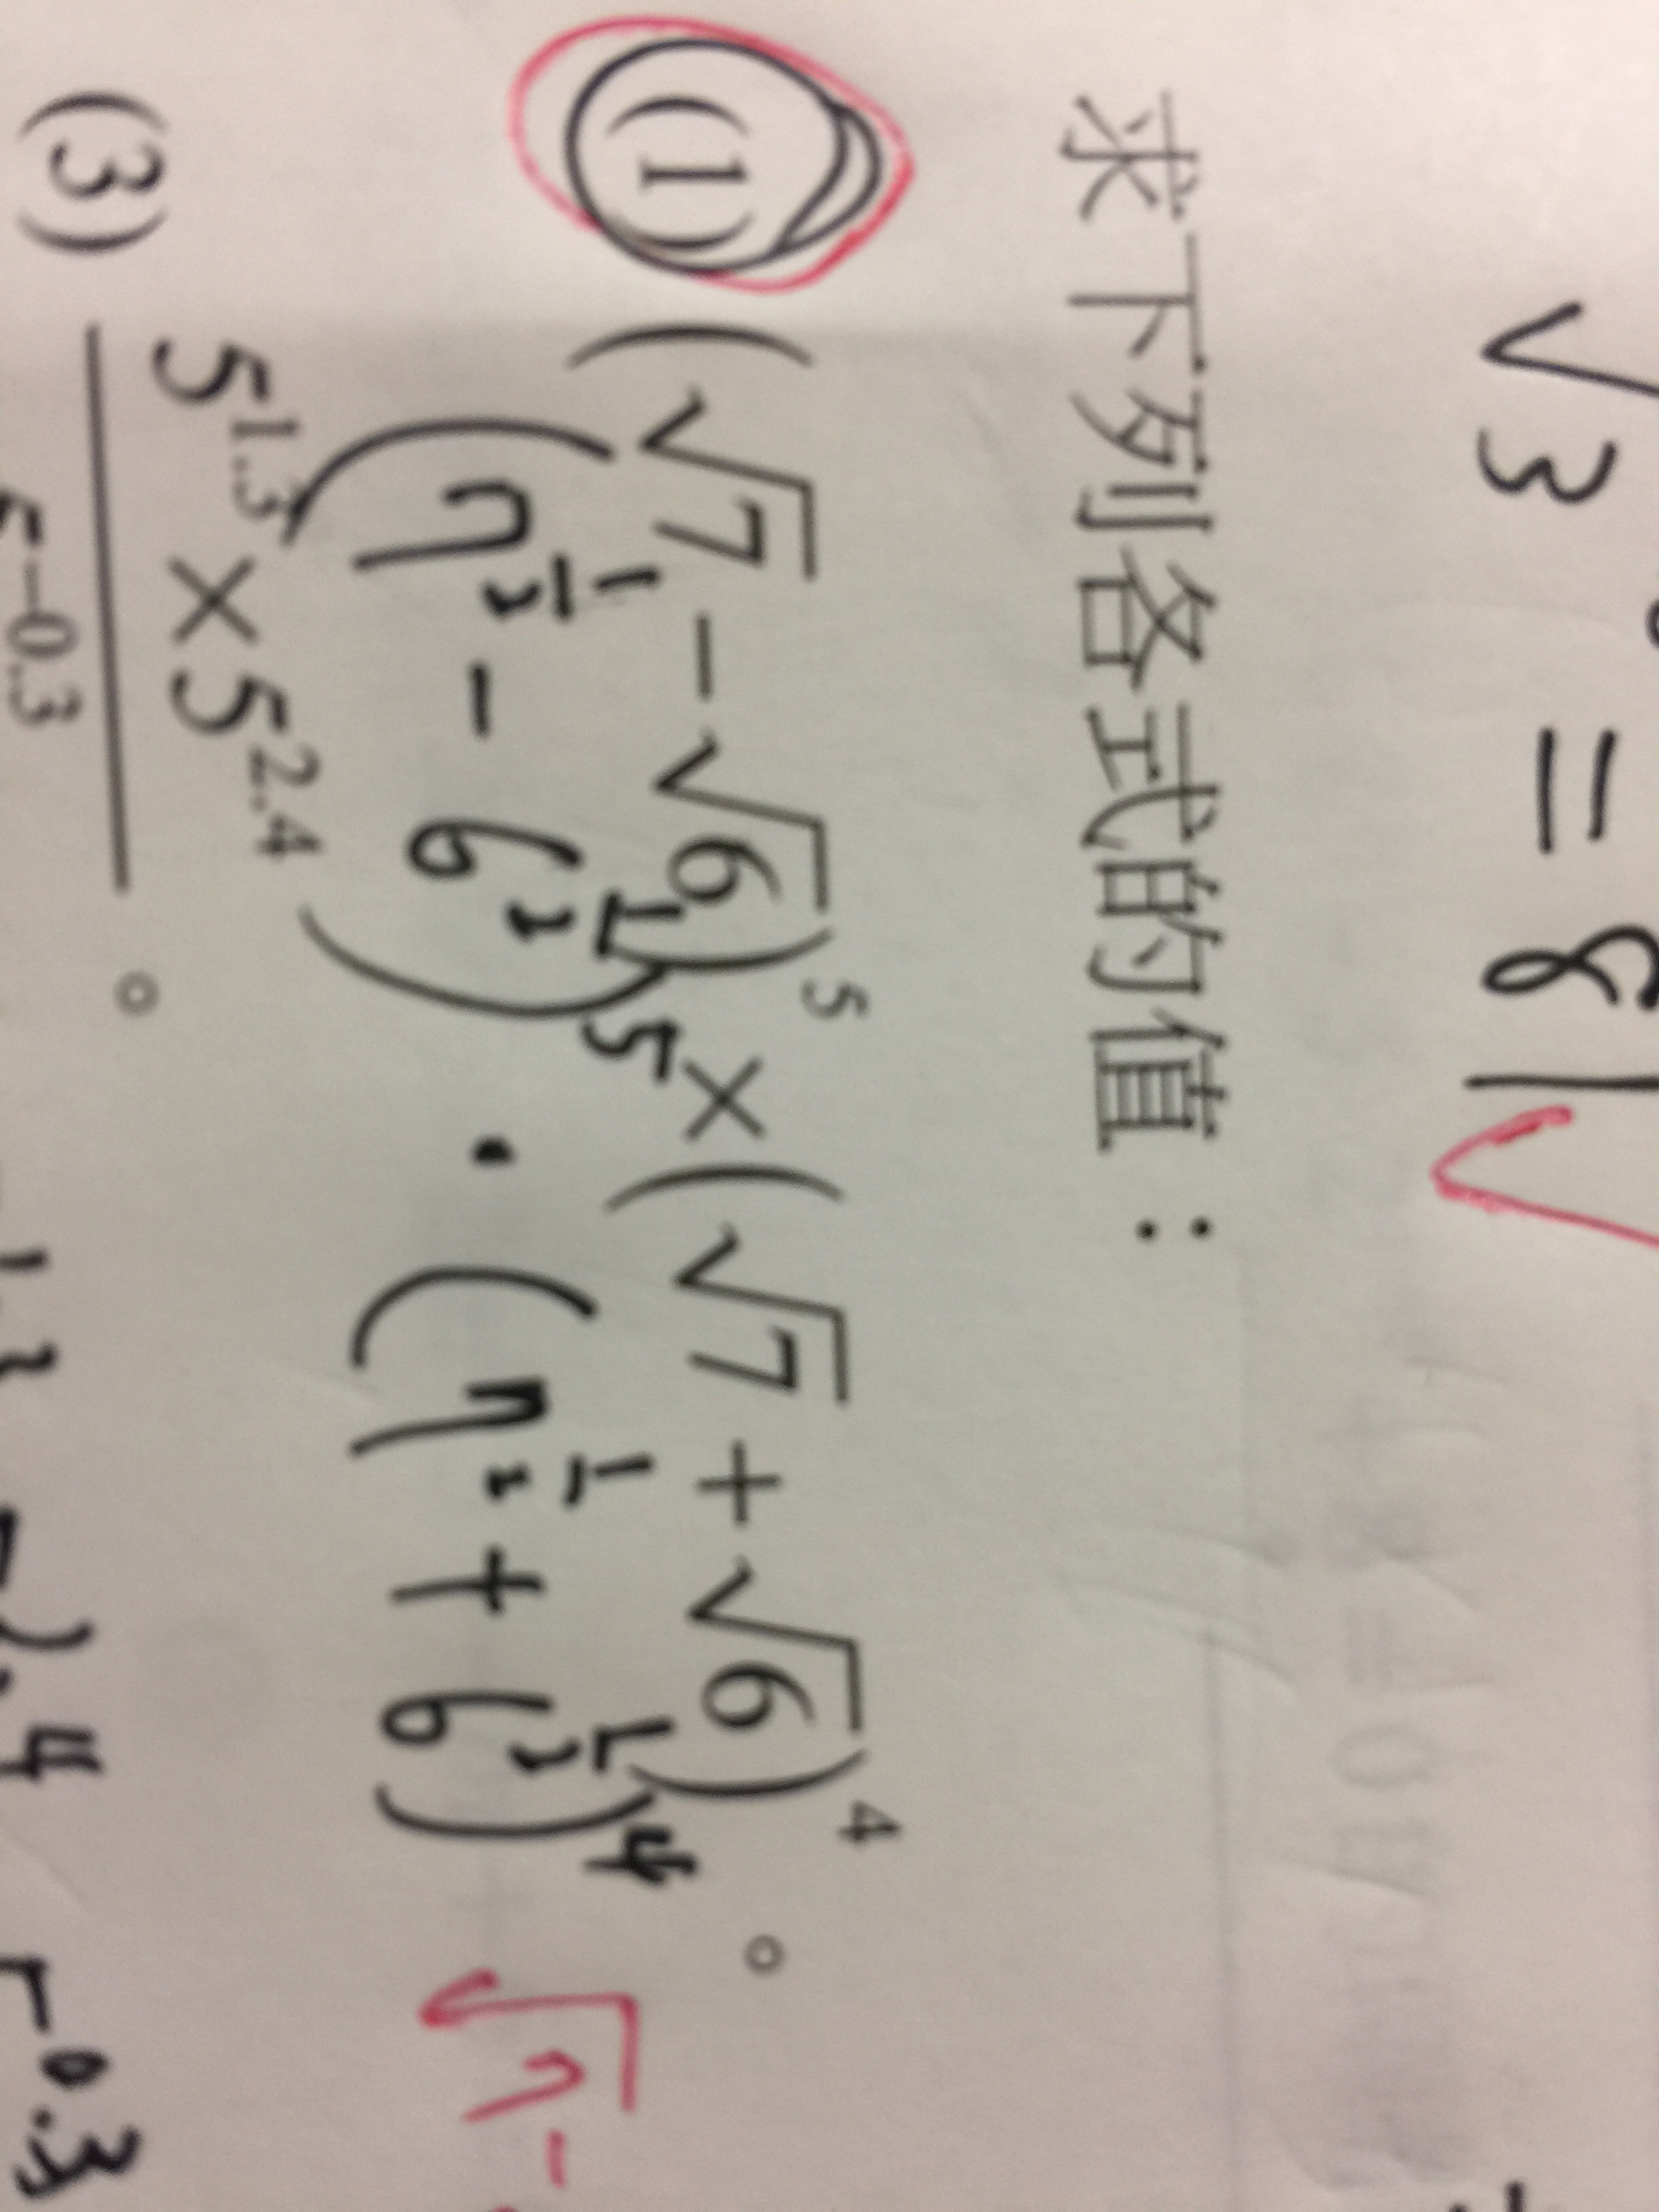 √3 = 81
求下列各式的值：
(1) (√7 − √6)⁵ × (√7 + √6)⁴ 。
(7^{1/2} - 6^{1/2})⁵ · (7^{1/2} + 6^{1/2})⁴ √7 -
(3) 5^{1.3} × 5^{2.4} / 5^{−0.3} 。